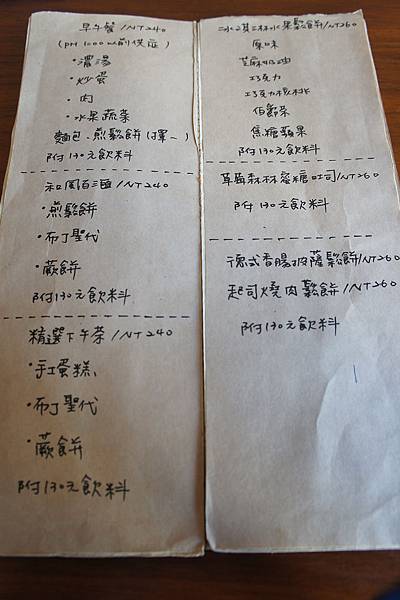 早午餐 /NT240
(PM 1:00以前供應)
・濃湯
・炒蛋
・肉
・水果蔬菜
麵包、煎鬆餅(擇一)
附130元飲料
和風百三匯/NT240
・煎鬆餅
・布丁聖代
・蕨餅
附130元飲料
精選下午茶/NT240
・手工蛋糕、
・布丁聖代
・蕨餅
附130元飲料
冰淇淋水果鬆餅/NT260
原味
芝麻奶油
巧克力
巧克力核桃
伯爵茶
焦糖蘋果
附130元飲料
草莓森林蜜糖吐司/NT260
附130元飲料
德式香腸披薩鬆餅/NT260
起司燒肉鬆餅/NT260
附130元飲料